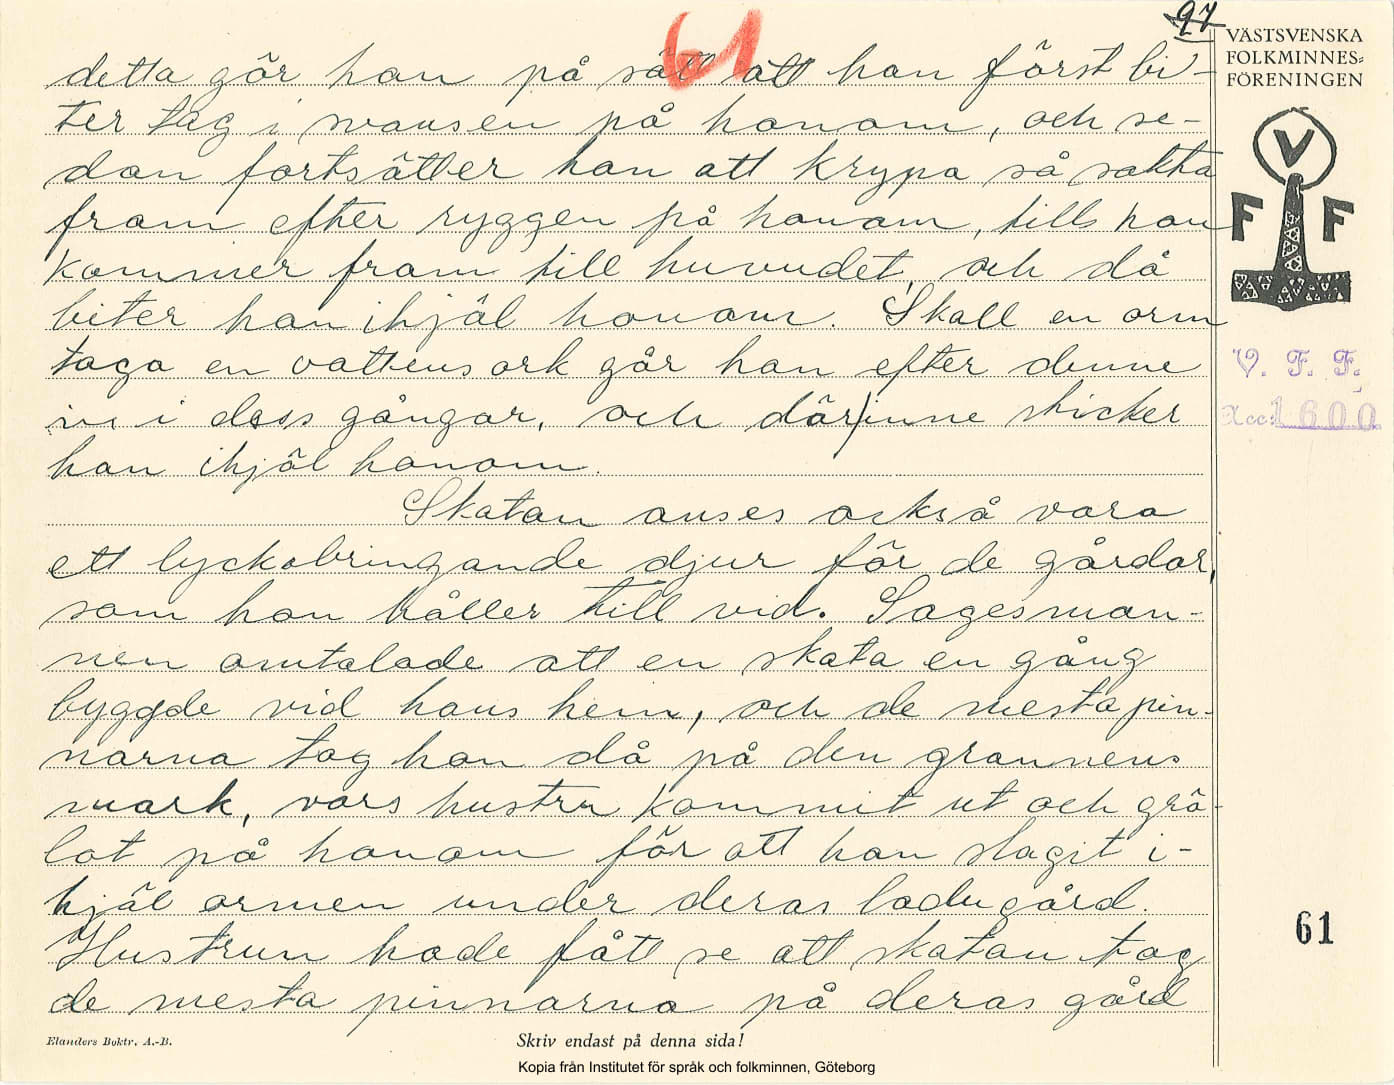 61
97
VÄSTSVENSKA
FOLKMINNES-
FÖRENINGEN
V
F F
V. F. F.
Acc: 1600
detta gör han på sätt att han först bi-
ter tag i svansen på honom, och se-
dan fortsätter han att krypa så sakta
fram efter ryggen på honom, tills han
kommer fram till huvudet, och då
biter han ihjäl honom. Skall en orm
taga en vattensork går han efter denne
in i dess gångar, och därinne sticker
han ihjäl honom.
Skatan anses också vara
ett lyckobringande djur för de gårdar,
som han håller till vid. Sagesman-
nen omtalade att en skata en gång
byggde vid hans hem, och de mesta pin-
narna tog han då på den grannens
mark, vars hustru kommit ut och grä-
lat på honom för att han slagit i-
hjäl ormen under deras ladugård.
Hustrun hade fått se att skatan tog
de mesta pinnarna på deras gård
61
Elanders Boktr. A.-B.
Skriv endast på denna sida!
Kopia från Institutet för språk och folkminnen, Göteborg